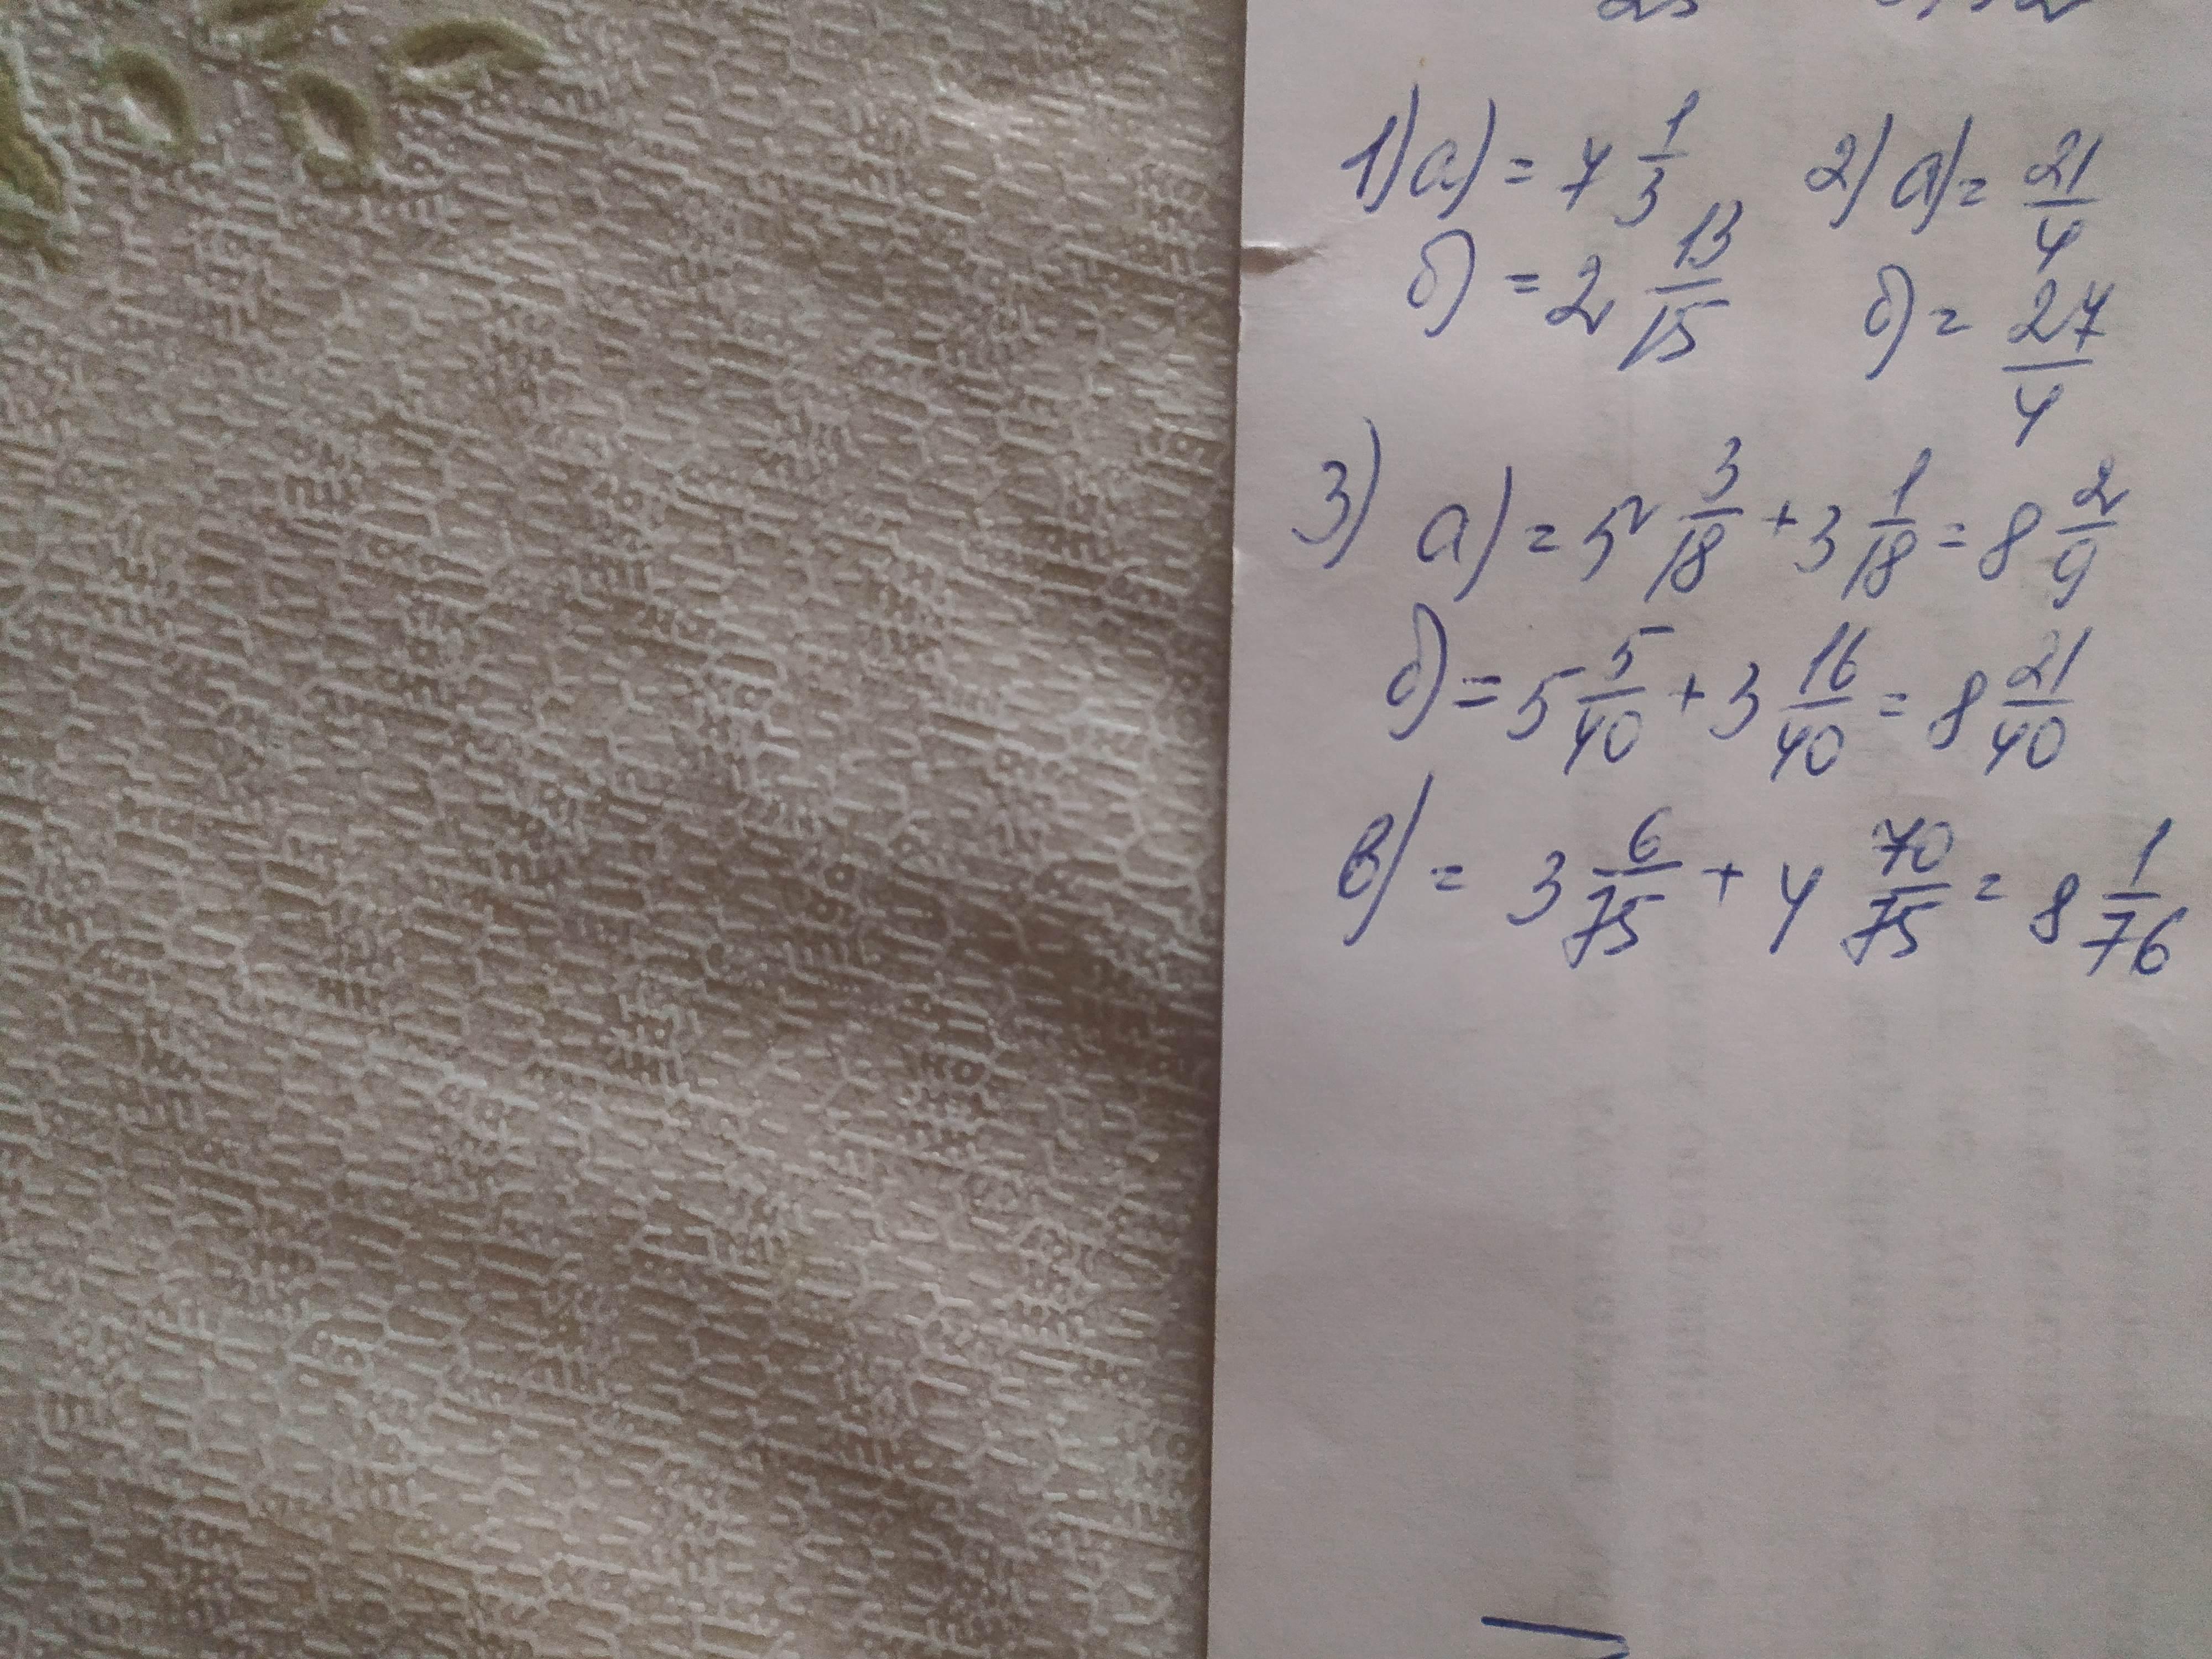 1) а) = 7 1/3 2) а) = 21/4
б) = 2 13/15 б) = 27/4
3) а) = 5 3/18 + 3 1/18 = 8 2/9
б) = 5 5/40 + 3 16/40 = 8 21/40
в) = 3 6/75 + 4 70/75 = 8 1/76